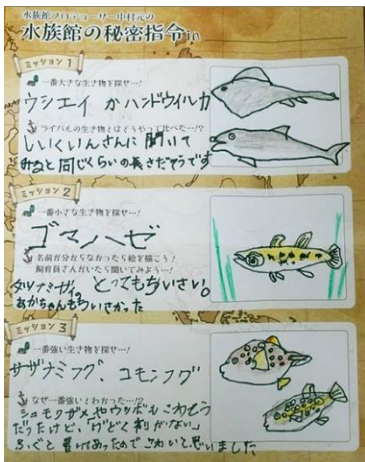 水族館プロデューサー中村元の
水族館の秘密指令in
ミッション 1
一番大きな生き物を探せ…!
ウシエイ かハンドウイルカ
ライバルの生き物とはどうやって比べた…!?
しいくいんさんに 聞いて
みると同じくらいの長さだそうです
ミッション 2
一番小さな生き物を探せ…!
ゴマハゼ
名前が分からなかったら絵を描こう!
飼育員さんがいたら聞いてみよう…!
とってもちいさい。
あかちゃんも ちいさかった
ミッション 3
一番強い生き物を探せ…!
サザナミフグ、コモンフグ
なぜ一番強いとわかった…!?
シュモクザメやウツボもこわそう
だったけど、「げどく剤がない」
ふぐと書いてあったのでこわいと思いました